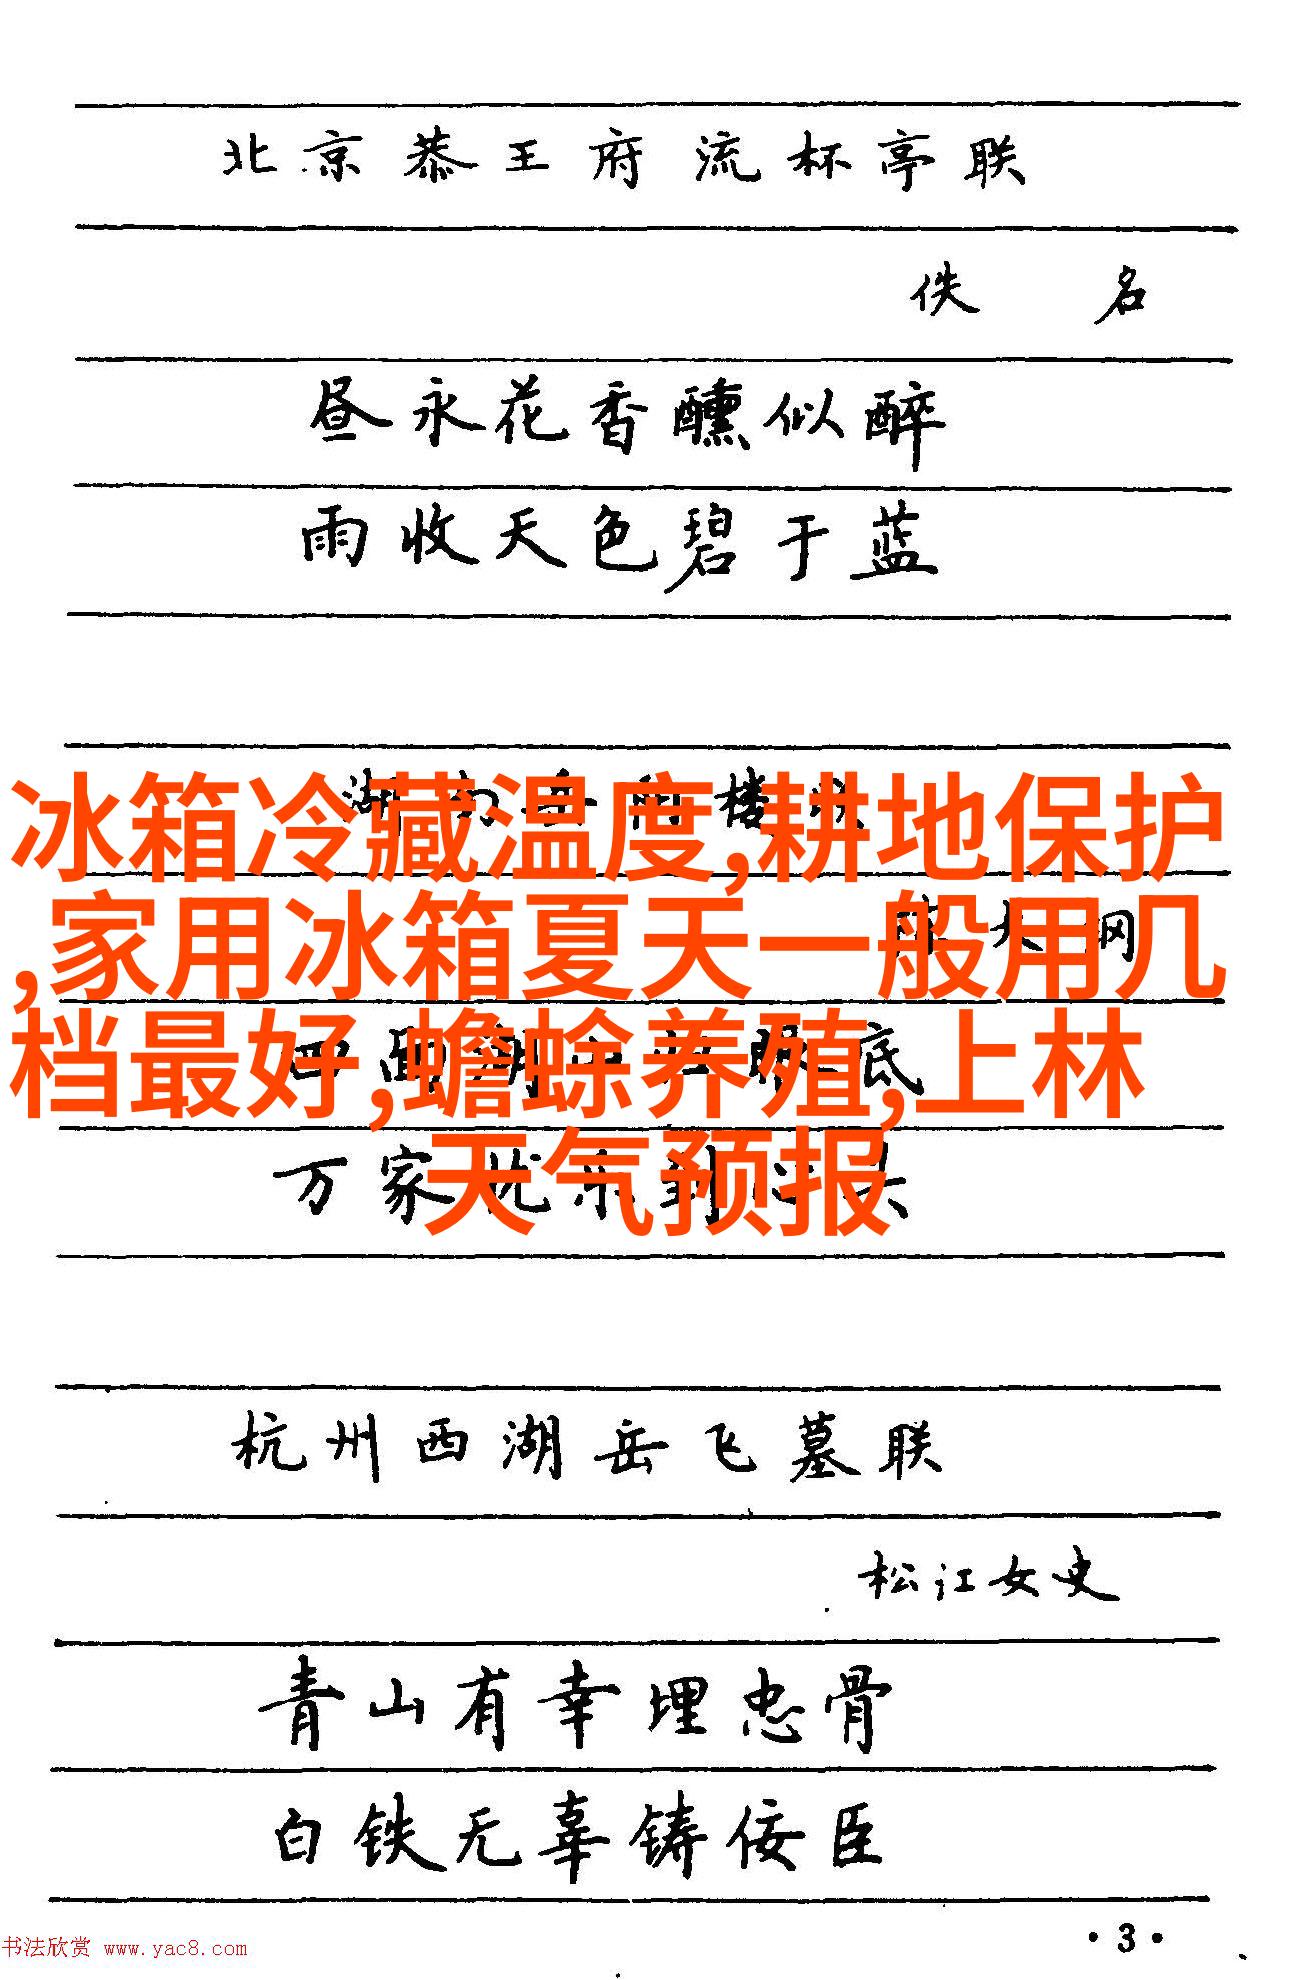 北京恭王府流杯亭联
佚名
昼永花香醺似醉
雨收天色碧于蓝
湖南岳阳楼联
冰箱冷藏温度,耕地保护
,家用冰箱夏天一般用几
档最好,蟾蜍养殖,上林
天气预报
大纲
四面湖山归眼底
万家忧乐到心头
杭州西湖岳飞墓联
松江女史
青山有幸埋忠骨
白铁无辜铸佞臣
·3·
书法欣赏 www.yac8.com